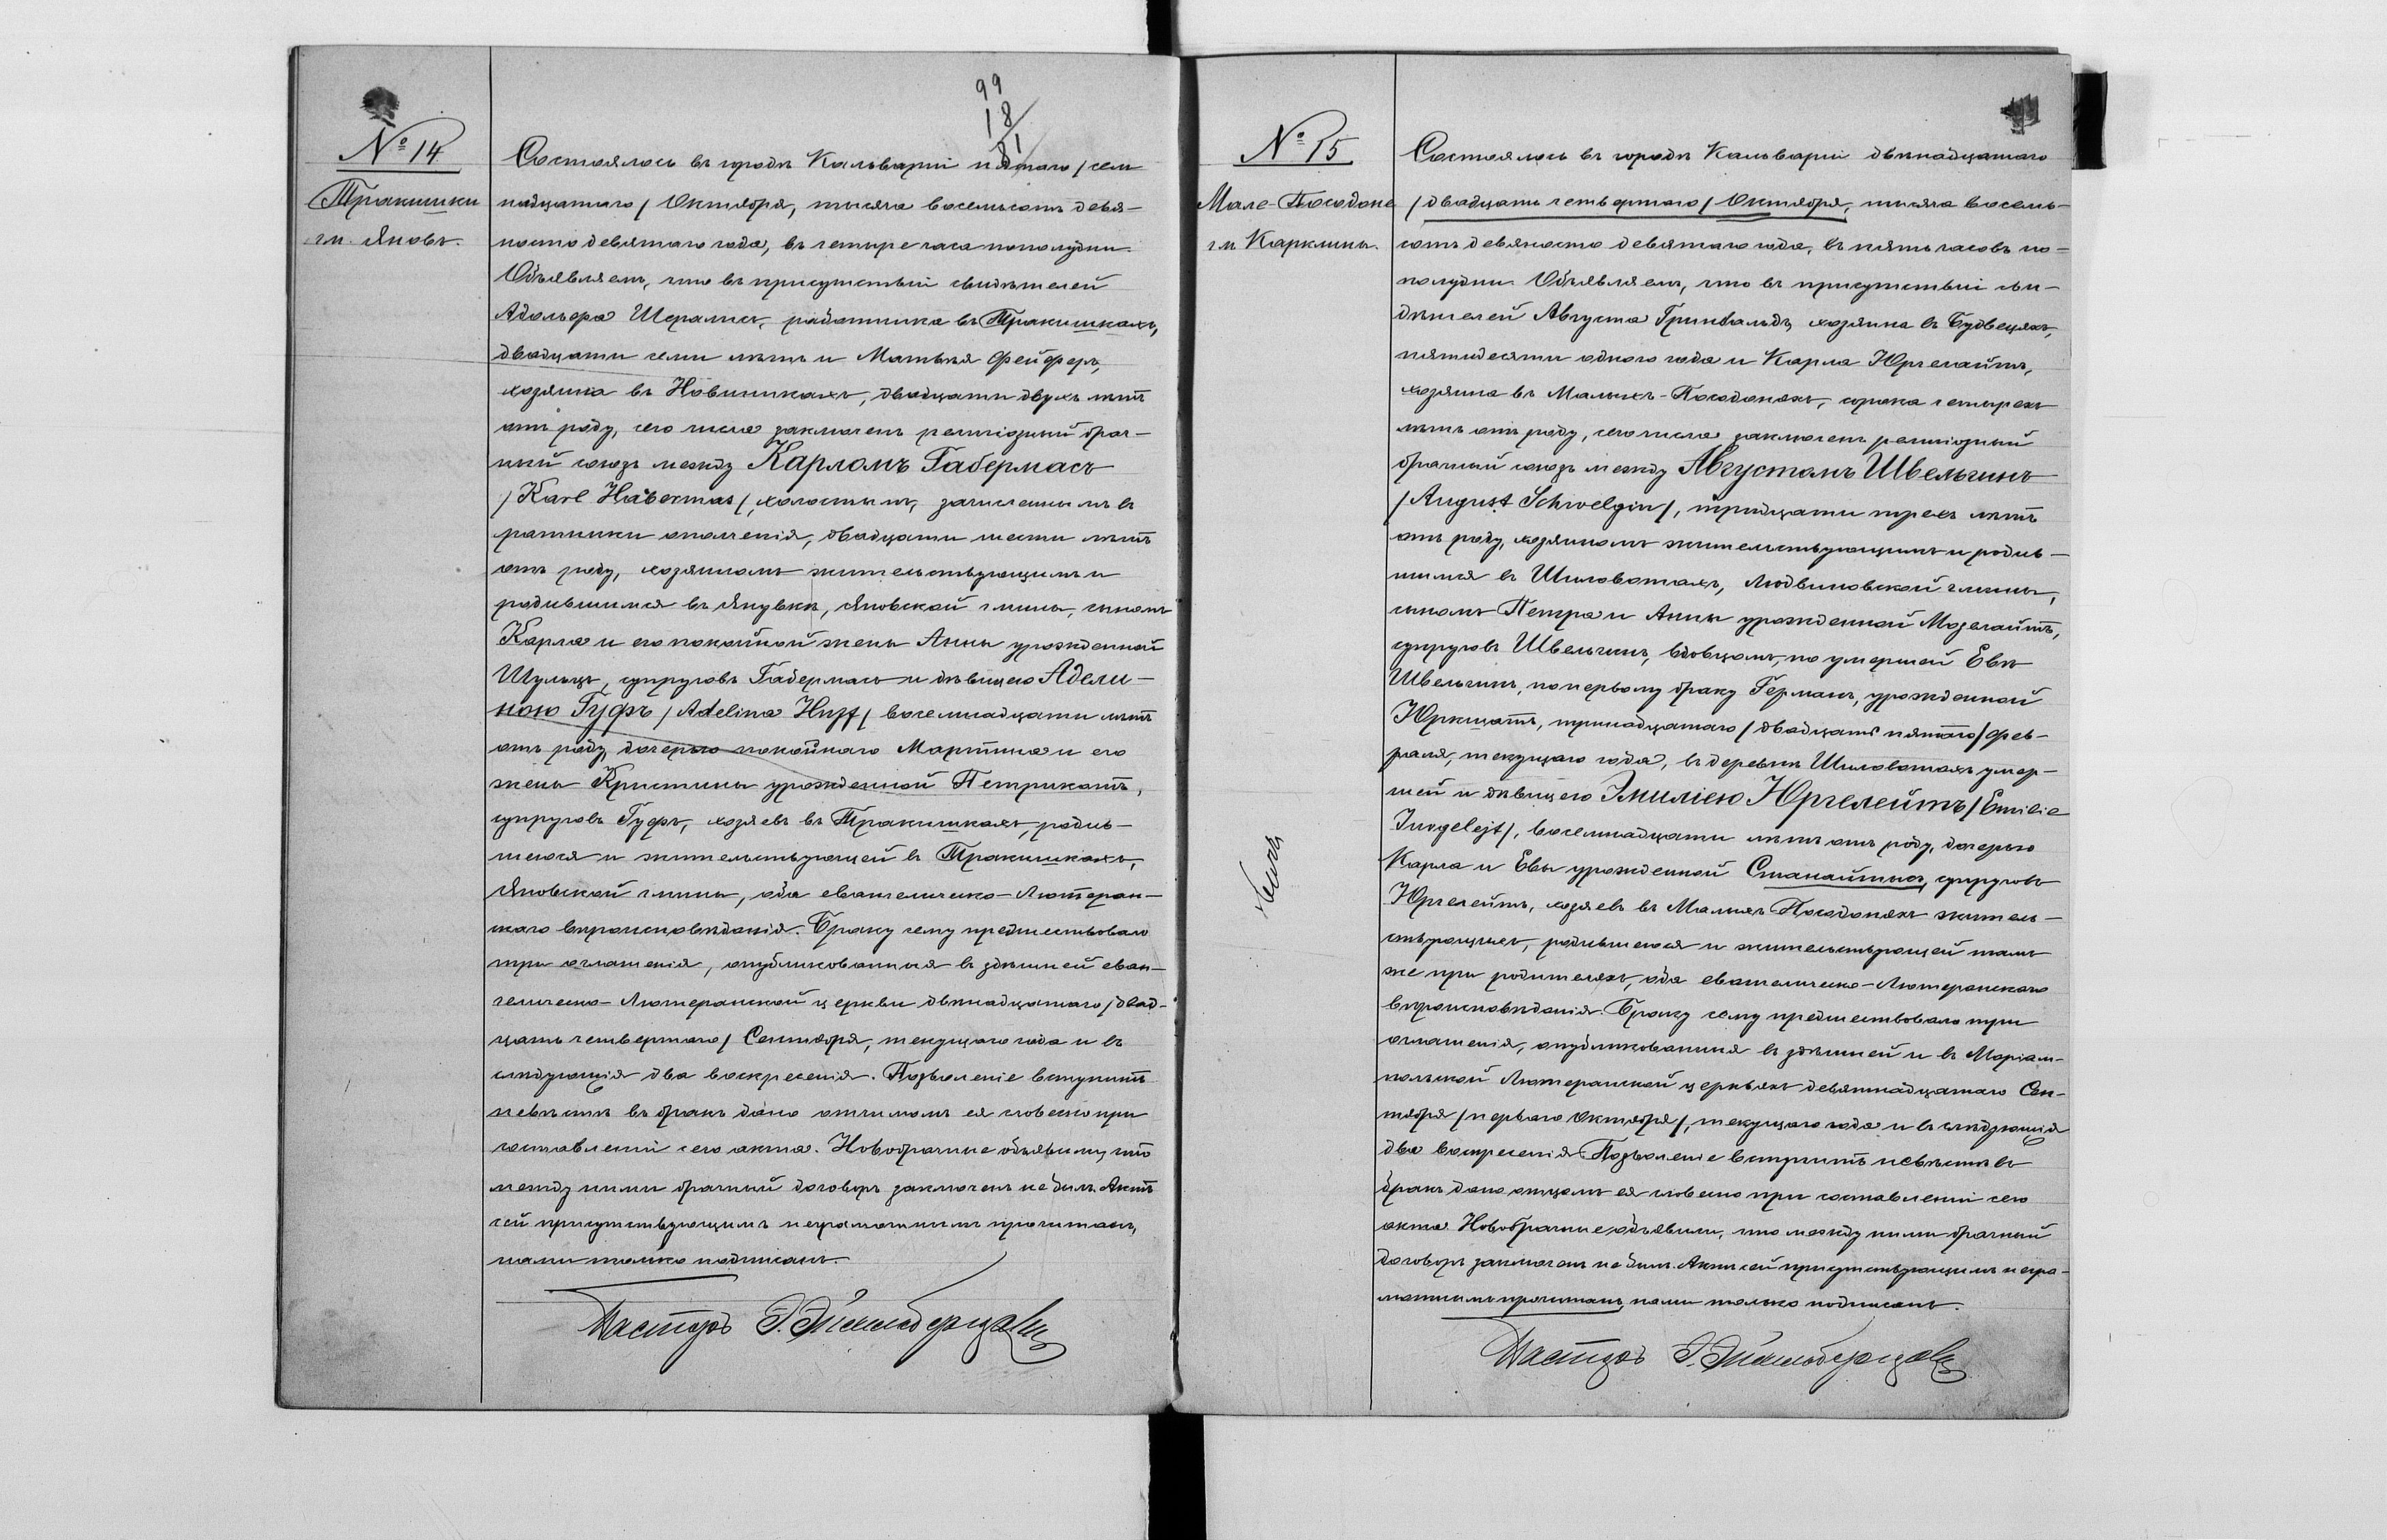 99
18
81
№ 14
Тракишки
гм. Яновъ.
Состоялось въ городѣ Кальваріи пятаго /сем
надцатаго/ Октября, тысяча восемьсотъ девя-
носто девятаго года, въ четыре часа пополудни.
Объявляемъ, что въ присутствіи свидѣтелей
Адольфа Шералисъ, работника въ Тракишкахъ,
двадцати семи лѣтъ и Матвѣя Фейферъ,
хозяина въ Новишикахъ, двадцати двухъ лѣтъ
отъ роду, сего числа заключенъ религіозный брач-
ный союзъ между Карломъ Габермасъ
/Karl Habermas/, холостымъ, зачисленнымъ въ
ратники ополченія, двадцати шести лѣтъ
отъ роду, хозяиномъ жительствующимъ и
родившимся въ Янувкѣ, Яновской гмины, сыномъ
Карла и его покойной жены Анны урожденной
Шульцъ, супруговъ Габермасъ и дѣвицею Адели-
ною Гуфъ /Adelina Huff/ восемнадцати лѣтъ
отъ роду, дочерью покойнаго Мартина и его
жены Кристины урожденной Петрикатъ,
супруговъ Гуфъ, хозяевъ въ Тракишкахъ, родив-
шеюся и жительствующей въ Тракишкахъ,
Яновской гмины, оба евангелическо-Лютеран-
скаго вѣроисповѣданія. Браку сему предшествовало
три оглашенія, опубликованныя въ здѣшней еван-
гелическо-Лютеранской церкви двѣнадцатаго /двад-
цать четвертаго/ Сентября, текущаго года и въ
слѣдующія два воскресенія. Позволеніе вступить
невѣстѣ въ бракъ дано отчимомъ ея словесно при
составленіи сего акта. Новобрачные объявили, что
между ними брачный договоръ заключенъ не былъ. Актъ
сей присутствующимъ неграмотнымъ прочитанъ,
нами только подписанъ.
Пасторъ
№ 15
Мале-Посадоне
гм. Карклины.
Состоялось въ городѣ Кальваріи двѣнадцатаго
/двадцать четвертаго/ Октября, тысяча восемь-
сотъ девяносто девятаго года, въ пять часовъ по-
полудни Объявляемъ, что въ присутствіи сви-
дѣтелей Августа Гринвальдъ, хозяина въ Будвецяхъ,
пятидесяти одного года и Карла Юргелайтъ,
хозяина въ Малыхъ-Посадоняхъ, сорока четырехъ
лѣтъ отъ роду, сего числа заключенъ религіозный
брачный союзъ между Августомъ Швельгинъ
/August Schwelgin/, тридцати трехъ лѣтъ
отъ роду, хозяиномъ жительствующимъ и родив-
шимся въ Шиловотахъ, Людвиновской гмины,
сыномъ Петра и Анны урожденной Мозелайтъ,
супруговъ Швельгинъ, вдовцомъ, по умершей Евѣ
Швельгинъ, по первому браку Германъ, урожденной
Юркщатъ, тринадцатаго /двадцать пятаго/ фев-
раля, текущаго года, въ деревнѣ Шиловотахъ умер-
шей и дѣвицею Эмиліею Юргелейтъ /Emilie
Jurgelejt/, восемнадцати лѣтъ отъ роду, дочерью
Карла и Евы урожденной Станайтисъ, супруговъ
Юргелейтъ, хозяевъ въ Малыхъ Посадоняхъ житель-
ствующихъ, родившеюся и жительствующей тамъ
же при родителяхъ, оба евангелическо-Лютеранскаго
вѣроисповѣданія. Браку сему предшествовало три
оглашенія, опубликованныя въ здѣшней и въ Маріам-
польской Лютеранской церквяхъ девятнадцатаго Сен-
тября /перваго Октября/, текущаго года и въ слѣдующія
два воскресенія. Позволеніе вступить невѣстѣ въ
бракъ дано отцомъ ея словесно при составленіи сего
акта. Новобрачные объявили, что между ними брачный
договоръ заключенъ не былъ. Актъ сей присутствующимъ негра-
мотнымъ прочитанъ, нами только подписанъ.
Пасторъ